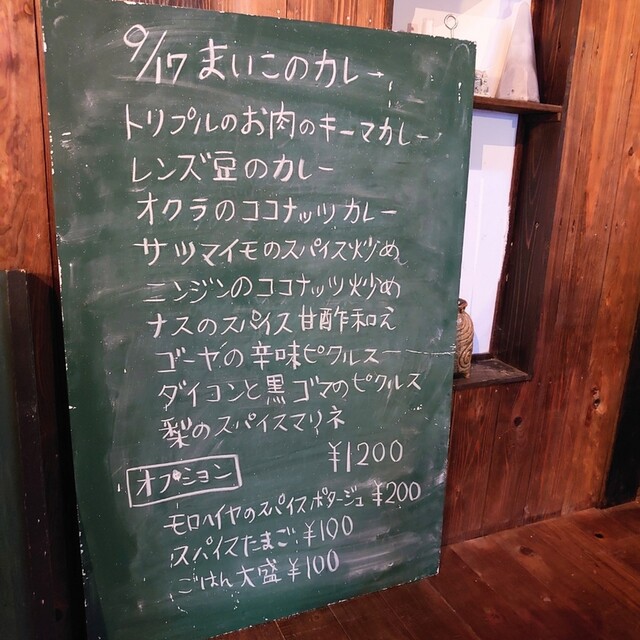 9/17 まいこのカレー
トリプルのお肉のキーマカレー
レンズ豆のカレー
オクラのココナッツカレー
サツマイモのスパイス炒め
ニンジンのココナッツ炒め
ナスのスパイス甘酢和え
ゴーヤの辛味ピクルス
ダイコンと黒ゴマのピクルス
梨のスパイスマリネ
¥1200
オプション
モロヘイヤのスパイスポタージュ ¥200
スパイスたまご ¥100
ごはん大盛 ¥100